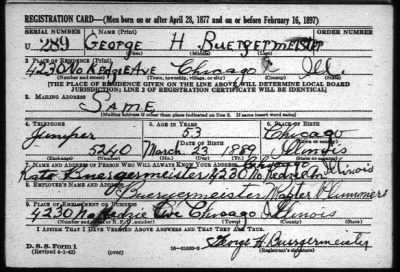 REGISTRATION CARD—(Men born on or after April 28, 1877 and on or before February 16, 1897)
SERIAL NUMBER 1. NAME (Print) ORDER NUMBER
U 289 GEORGE H BUERGERMEISTER
(First) (Middle) (Last)
2. PLACE OF RESIDENCE (Print)
4230 No Kedzie Ave Chicago Ill.
(Number and street) (Town, township, village, or city) (County) (State)
[THE PLACE OF RESIDENCE GIVEN ON THE LINE ABOVE WILL DETERMINE LOCAL BOARD
JURISDICTION; LINE 2 OF REGISTRATION CERTIFICATE WILL BE IDENTICAL]
3. MAILING ADDRESS
SAME
(Mailing address if other than place indicated on line 2. If same insert word same)
4. TELEPHONE 5. AGE IN YEARS 6. PLACE OF BIRTH
Juniper 53 Chicago
DATE OF BIRTH
5240 March 23 1889 Illinois
(Exchange) (Number) (Mo.) (Day) (Yr.) (State or country)
7. NAME AND ADDRESS OF PERSON WHO WILL ALWAYS KNOW YOUR ADDRESS Chicago
Kate Buergermeister 4230 No Kedzie Ave Illinois
8. EMPLOYER'S NAME AND ADDRESS
Buergermeister Master Plummers
9. PLACE OF EMPLOYMENT OR BUSINESS
4230 No Kedzie Ave Chicago Illinois
(Number and street or R. F. D. number) (Town) (County) (State)
I AFFIRM THAT I HAVE VERIFIED ABOVE ANSWERS AND THAT THEY ARE TRUE.
D. S. S. Form 1
(Revised 4-1-42) (over) George H Buergermeister
(Registrant's signature)